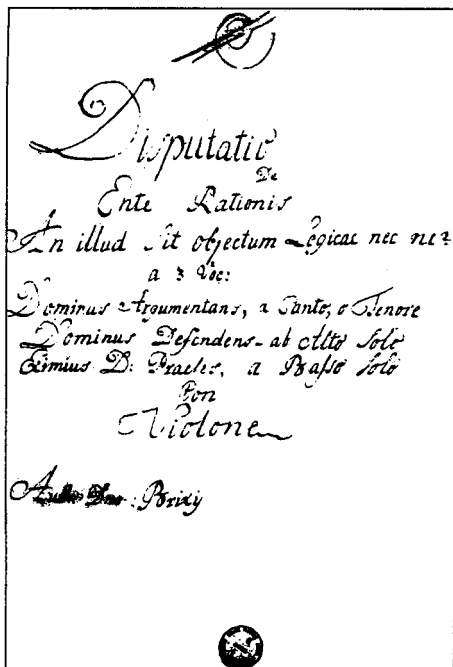 Disputatio
De
Ente Rationis
An illud sit objectum Logicae nec ne?
a 3 Voc:
Dominus Argumentans, a Canto, o Tenore
Dominus Defendens - ab Alto Solo
Eximius D: Praeses, a Basso Solo
Con
Violone
Brixij